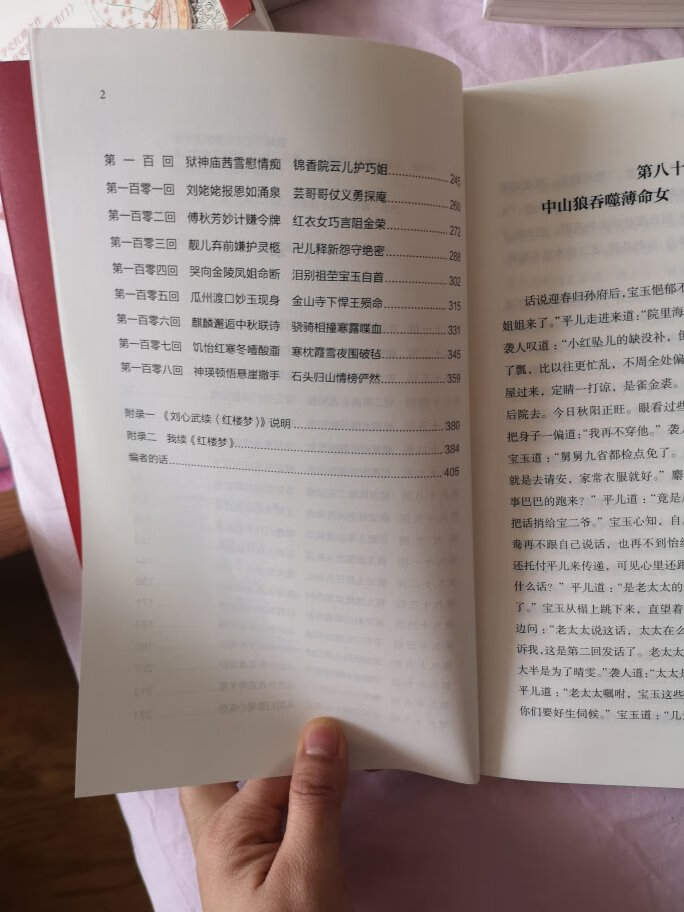 2
第一百回 狱神庙茜雪慰情痴 锦香院云儿护巧姐……245
第一百零一回 刘姥姥报恩如涌泉 芸哥哥仗义勇探庵……260
第一百零二回 傅秋芳妙计赚令牌 红衣女巧言阻金荣……272
第一百零三回 靓儿弃前嫌护灵柩 卍儿释新怨守绝密……288
第一百零四回 哭向金陵凤姐命断 泪别祖茔宝玉自首……302
第一百零五回 瓜州渡口妙玉现身 金山寺下悍王殒命……315
第一百零六回 麒麟邂逅中秋联诗 骁骑相撞寒露喋血……331
第一百零七回 饥怡红寒冬噎酸齑 寒枕霞雪夜围破毡……345
第一百零八回 神瑛顿悟悬崖撒手 石头归山情榜俨然……359
附录一 《刘心武续〈红楼梦〉》说明……380
附录二 我续《红楼梦》……384
编者的话……405
第八十
中山狼吞噬薄命女
话说迎春归孙府后，宝玉悒郁不
姐姐来了。”平儿走进来道：“院里海
袭人叹道：“小红坠儿的缺没补，
了瓢，比以往更忙乱，不周全处偏
屋过来，定睛一打谅，是雀金裘。
后院去。今日秋阳正旺。眼看过些
把身子一偏道：“我再不穿他。”袭
宝玉道：“舅舅九省都检点免了。
就是去请安，家常衣服就好。”麝
事巴巴的跑来？”平儿道：“竟是
把话捎给宝二爷。”宝玉心知，自
鸯再不跟自己说话，也再不到怡
还托付平儿来传递，可见心里还
什么话？”平儿道：“是老太太的
了。”宝玉从榻上跳下来，直望着
边问：“老太太说这话，太太在么
诉我，这是第二回发话了。老太太
大半是为了晴雯。”袭人道：“太太是
平儿道：“老太太嘱咐，宝玉这些
你们要好生伺候。”宝玉道：“几